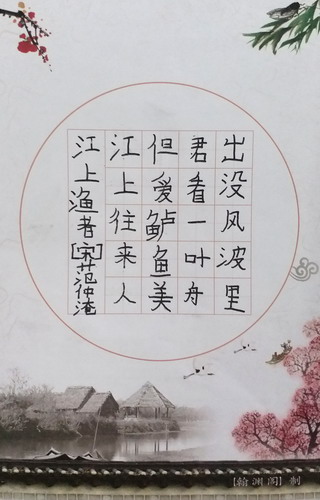 江上渔者[宋]范仲淹
江上往来人
但爱鲈鱼美
君看一叶舟
出没风波里
[翰渊阁]制